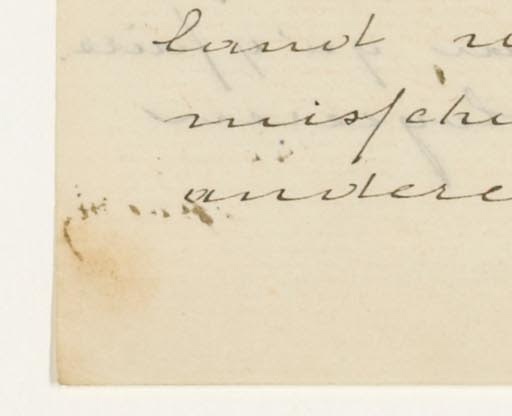 land
misschi
andere